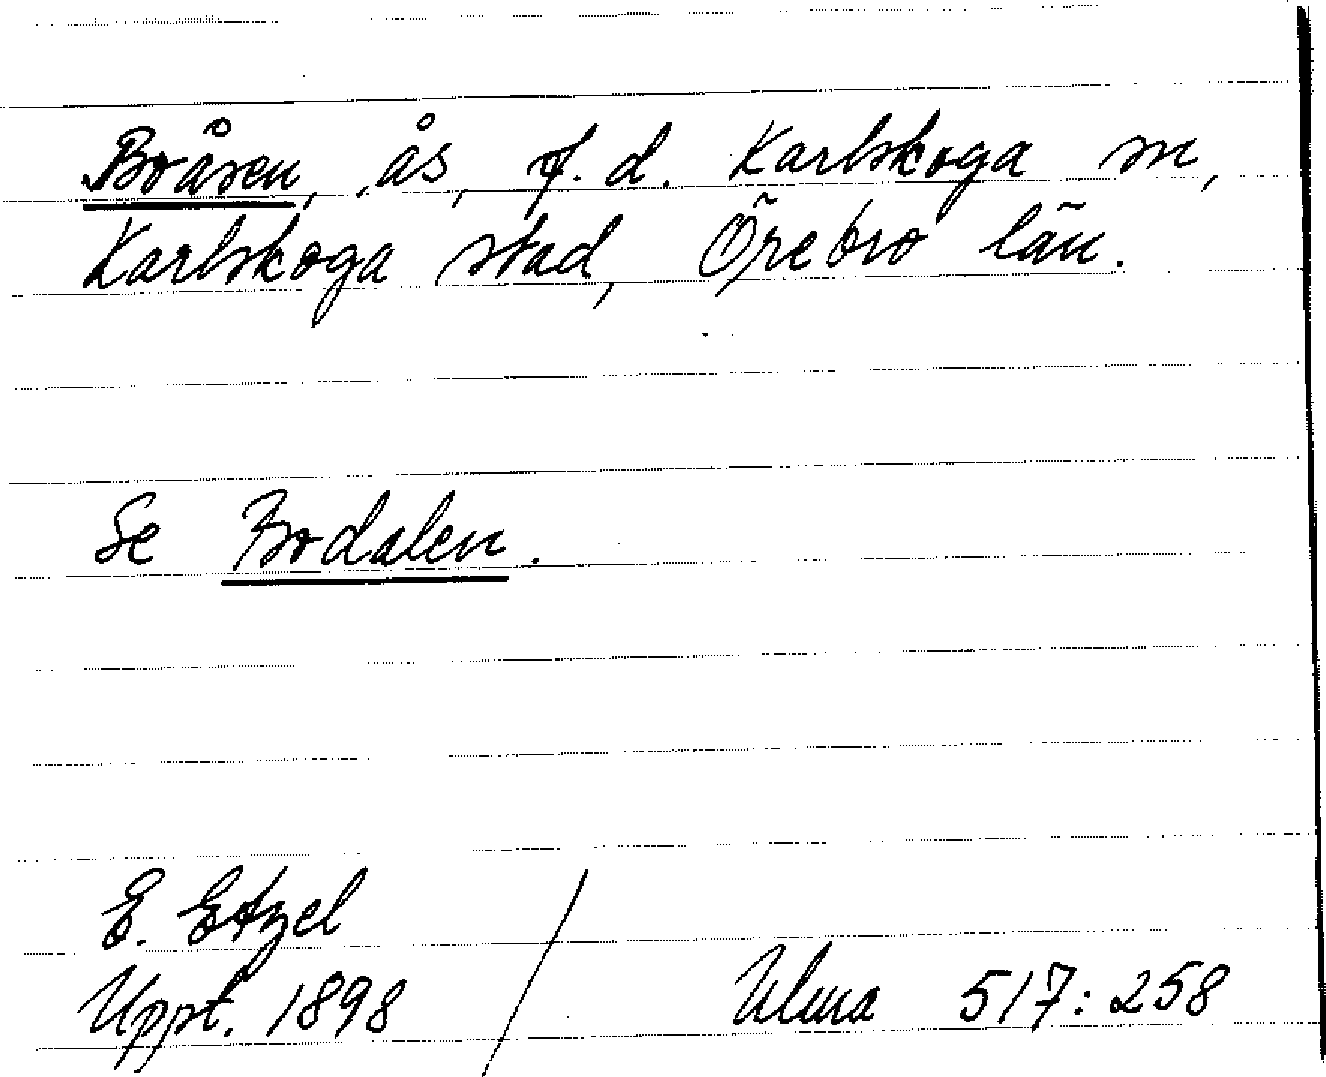 Boåsen, ås, f.d. Karlskoga sn,
Karlskoga stad, Örebro län.
Se Bodalen.
E. Etzel
Uppt. 1898 / Ulma 517:258